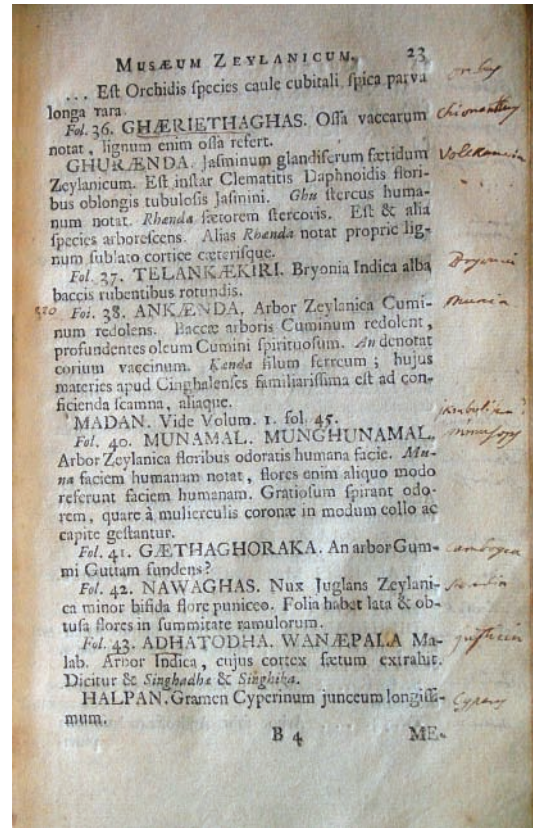 MUSÆUM ZEYLANICUM. 23
... Eſt Orchidis ſpecies caule cubitali ſpica parva
longa rara.
Fol. 36. GHÆRIETHAGHAS. Oſſa vaccarum
notat, lignum enim oſſa refert.
GHURÆNDA. Jaſminum glandiferum fætidum
Zeylanicum. Eſt inſtar Clematitis Daphnoidis flori-
bus oblongis tubuloſis Jaſmini. Ghu ſtercus huma-
num notat. Rhænda fætorem ſtercoris. Eſt & alia
ſpecies arboreſcens. Alias Rhænda notat proprie lig-
num ſublato cortice cæteriſque.
Fol. 37. TELANKÆKIRI. Bryonia Indica alba
baccis rubentibus rotundis.
320 Fol. 38. ANKÆNDA. Arbor Zeylanica Cumi-
num redolens. Baccæ arboris Cuminum redolent,
profundentes oleum Cumini ſpirituoſum. An denotat
corium vaccinum. Kænda filum ferreum; hujus
materies apud Cinghalenſes familiariſſima eſt ad con-
ficienda ſcamna, aliaque.
MADAN. Vide Volum. 1. fol. 45.
Fol. 40. MUNAMAL. MUNGHUNAMAL.
Arbor Zeylanica floribus odoratis humana facie. Mu-
na faciem humanam notat, flores enim aliquo modo
referunt faciem humanam. Gratioſum ſpirant odo-
rem, quare à mulierculis coronæ in modum collo ac
capite geſtantur.
Fol. 41. GÆTHAGHORAKA. An arbor Gum-
mi Guttam fundens?
Fol. 42. NAWAGHAS. Nux Juglans Zeylani-
ca minor bifida flore puniceo. Folia habet lata & ob-
tuſa flores in ſummitate ramulorum.
Fol. 43. ADHATODHA. WANÆPALA Ma-
lab. Arbor Indica, cujus cortex fætum extrahit.
Dicitur & Singhadhæ & Singhika.
HALPAN. Gramen Cyperinum junceum longiſſi-
mum.
B 4 ME-
chionanthus
Volkameria
Bryonia
cambogea
justicia
Cyperus